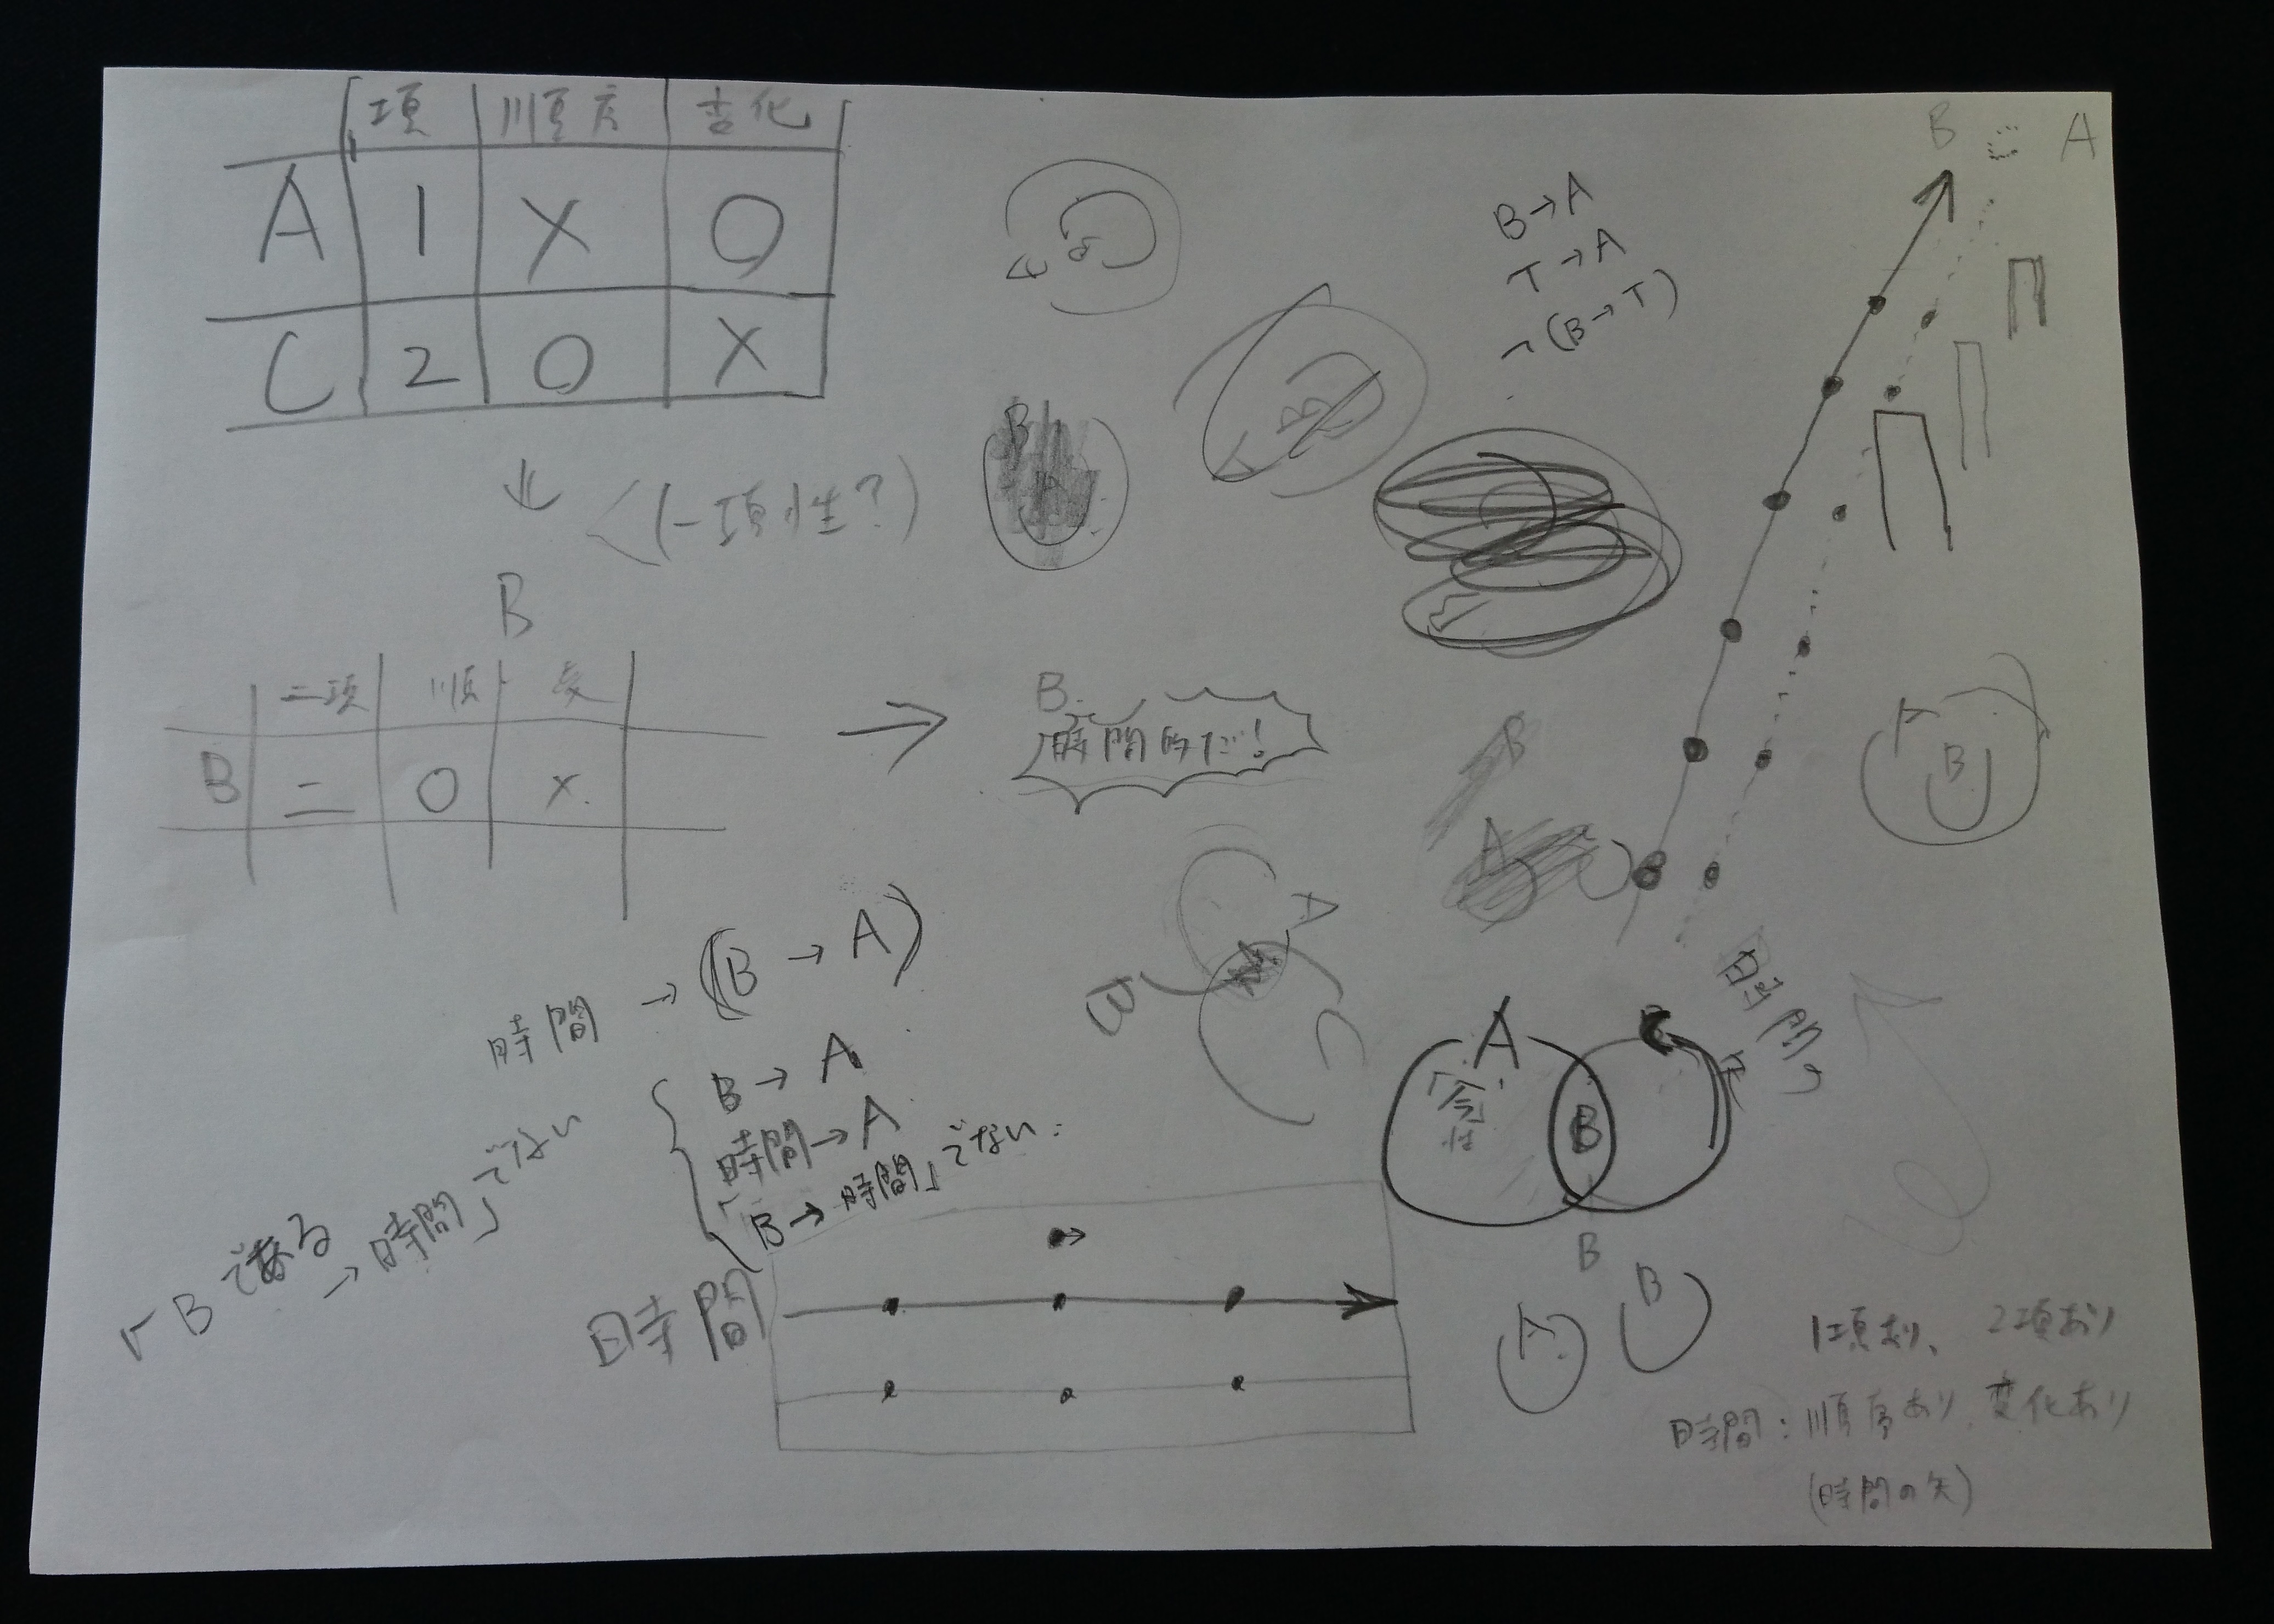 項 順序 変化
A 1 × ○
C 2 ○ ×
↓ <(一項性?)
B
二項 順 変
B 二 ○ ×
→
B
「時間的だ!
B→A
T→A
¬(B→T)
B A
B
A
B
B
A
A
B
時間→(B→A)
B→A
時間→A
「B→時間」でない
「Bである→時間」でない
時間
A
「今」性
B
時間
B
A
B
1項あり、2項あり
時間:順序あり、変化あり
(時間の矢)